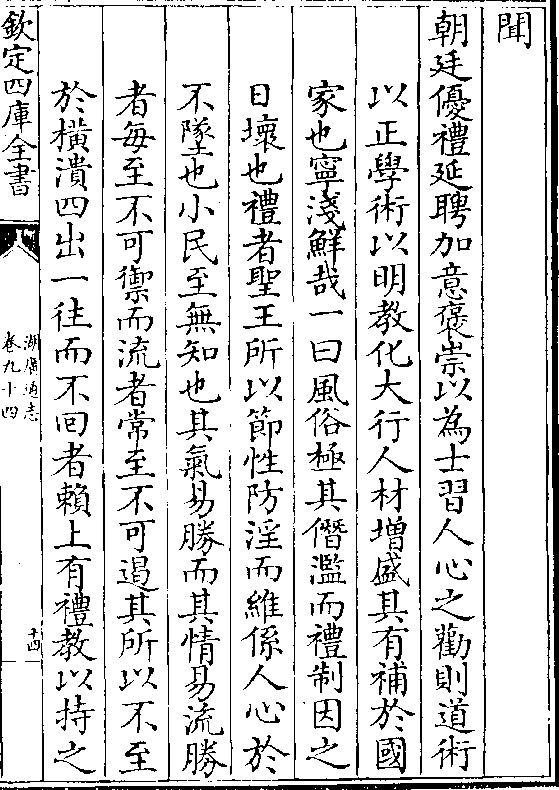 聞
朝廷優禮延聘加意褒崇以為士習人心之勸則道術
以正學術以明教化大行人材增盛其有補於國
家也寧淺鮮哉一曰風俗極其僭濫而禮制因之
日壞也禮者聖王所以節性防淫而維係人心於
不墜也小民至無知也其氣易勝而其情易流勝
者每至不可禦而流者常至不可遏其所以不至
於橫潰四出一往而不囘者賴上有禮教以持之
欽定四庫全書
湖廣通志
卷九十四
十四